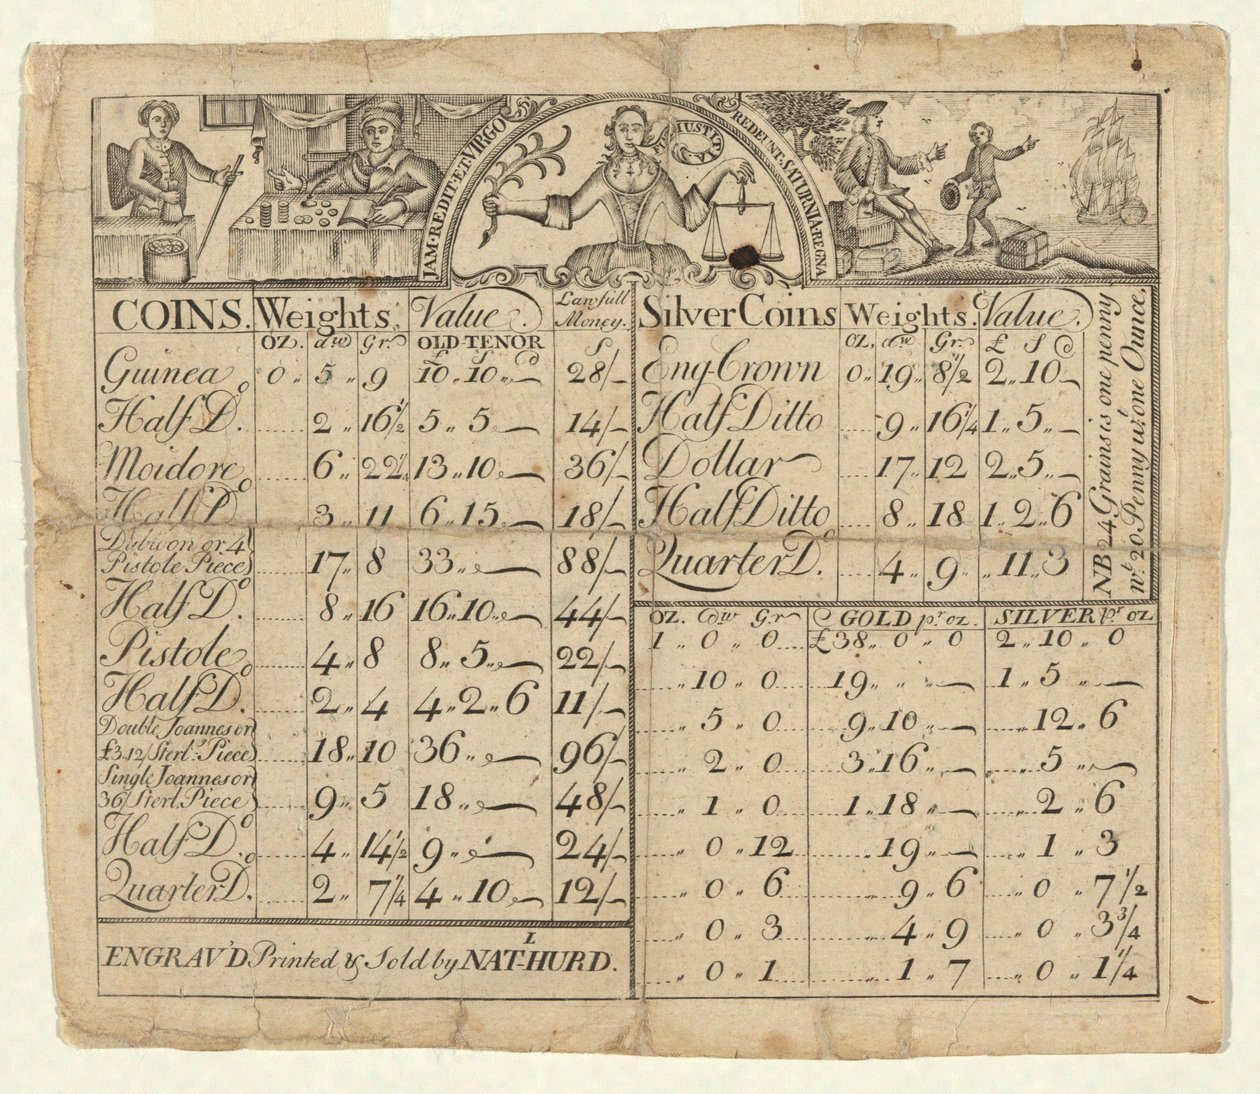 JAM·REDIT·ET·VIRGO
JUSTITIA
REDEUNT·SATURNIA·REGNA
COINS. Weights. Value. Lawfull Money.
OZ. dwt Gr. OLD TENOR
£ S d S
Guinea 0 „ 5 „ 9 10 „ 10 „ — 28/—
Half Do. 2 „ 16½ 5 „ 5 — 14/—
Moidore 6 „ 22¼ 13 „ 10 — 36/—
Half Do. 3 „ 11 6 „ 15 — 18/—
Dubloon or 4
Pistole Piece 17 „ 8 33 „ — 88/—
Half Do. 8 „ 16 16 „ 10 „ — 44/—
Pistole 4 „ 8 8 „ 5 „ — 22/—
Half Do. 2 „ 4 4 „ 2 „ 6 11/—
Double Joannes or
£3.12/Sterlg. Piece 18 „ 10 36 „ — 96/—
Single Joannes or
36/Sterl. Piece 9 „ 5 18 „ — 48/—
Half Do. 4 „ 14½ 9 „ — 24/—
Quarter Do. 2 „ 7¼ 4 „ 10 — 12/—
ENGRAV'D Printed & Sold by NATL HURD.
Silver Coins Weights. Value.
OZ. dwt Gr. £ S d
Eng Crown 0 „ 19 „ 8½ 2 „ 10 —
Half Ditto 9 „ 16¼ 1 „ 5 —
Dollar 17 „ 12 2 „ 5 —
Half Ditto 8 „ 18 1 „ 2 „ 6
Quarter Do. 4 „ 9 „ 11 „ 3
NB 24 Grains is one penny
wt. 20 Penny wt. one Ounce.
OZ. dwt Gr GOLD pr oz. SILVER pr oz
1 „ 0 „ 0 £38 „ 0 „ 0 2 „ 10 „ 0
„ 10 „ 0 19 „ „ — 1 „ 5 „ —
„ 5 „ 0 9 „ 10 „ — „ 12 „ 6
„ 2 „ 0 3 „ 16 „ — „ 5 „ —
„ 1 „ 0 1 „ 18 „ — „ 2 „ 6
„ 0 „ 12 „ 19 „ — „ 1 „ 3
„ 0 „ 6 „ 9 „ 6 „ 0 „ 7½
„ 0 „ 3 „ 4 „ 9 „ 0 „ 3¾
„ 0 „ 1 „ 1 „ 7 „ 0 „ 1¼